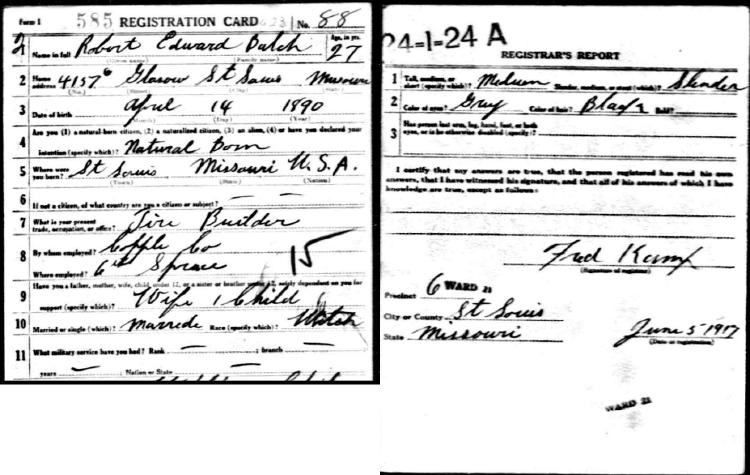 Form 1 585 REGISTRATION CARD No. 88
Age, in yrs.
1 Name in full Robert Edward Balch 27
(Given name) (Family name)
2 Home address 4157 Glasow St Louis Missouri
(No.) (Street) (City) (State)
3 Date of birth April 14 1890
(Month) (Day) (Year)
4 Are you (1) a natural-born citizen, (2) a naturalized citizen, (3) an alien, (4) or have you declared your
intention (specify which)? Natural Born
5 Where were you born? St Louis Missouri U.S.A.
(Town) (State) (Nation)
6 If not a citizen, of what country are you a citizen or subject? — —
7 What is your present trade, occupation, or office? Tire Builder
8 By whom employed? Copple Co
Where employed? 6th Spruce 15
9 Have you a father, mother, wife, child under 12, or a sister or brother under 12, solely dependent on you for
support (specify which)? Wife 1 Child
10 Married or single (which)? Marrede Race (specify which)?
11 What military service have you had? Rank — ; branch —
years — ; Nation or State
24-1-24 A
REGISTRAR'S REPORT
1 Tall, medium, or short (specify which)? Medium Slender, medium, or stout (which)? Slender
2 Color of eyes? Gray Color of hair? Black Bald?
3 Has person lost arm, leg, hand, foot, or both
eyes, or is he otherwise disabled (specify)?
I certify that my answers are true, that the person registered has read his own
answers, that I have witnessed his signature, and that all of his answers of which I have
knowledge are true, except as follows:
Fred Kamp
(Signature of registrar)
Precinct 6 WARD 21
City or County St Louis
State Missouri June 5 1917
(Date of registration)
WARD 21